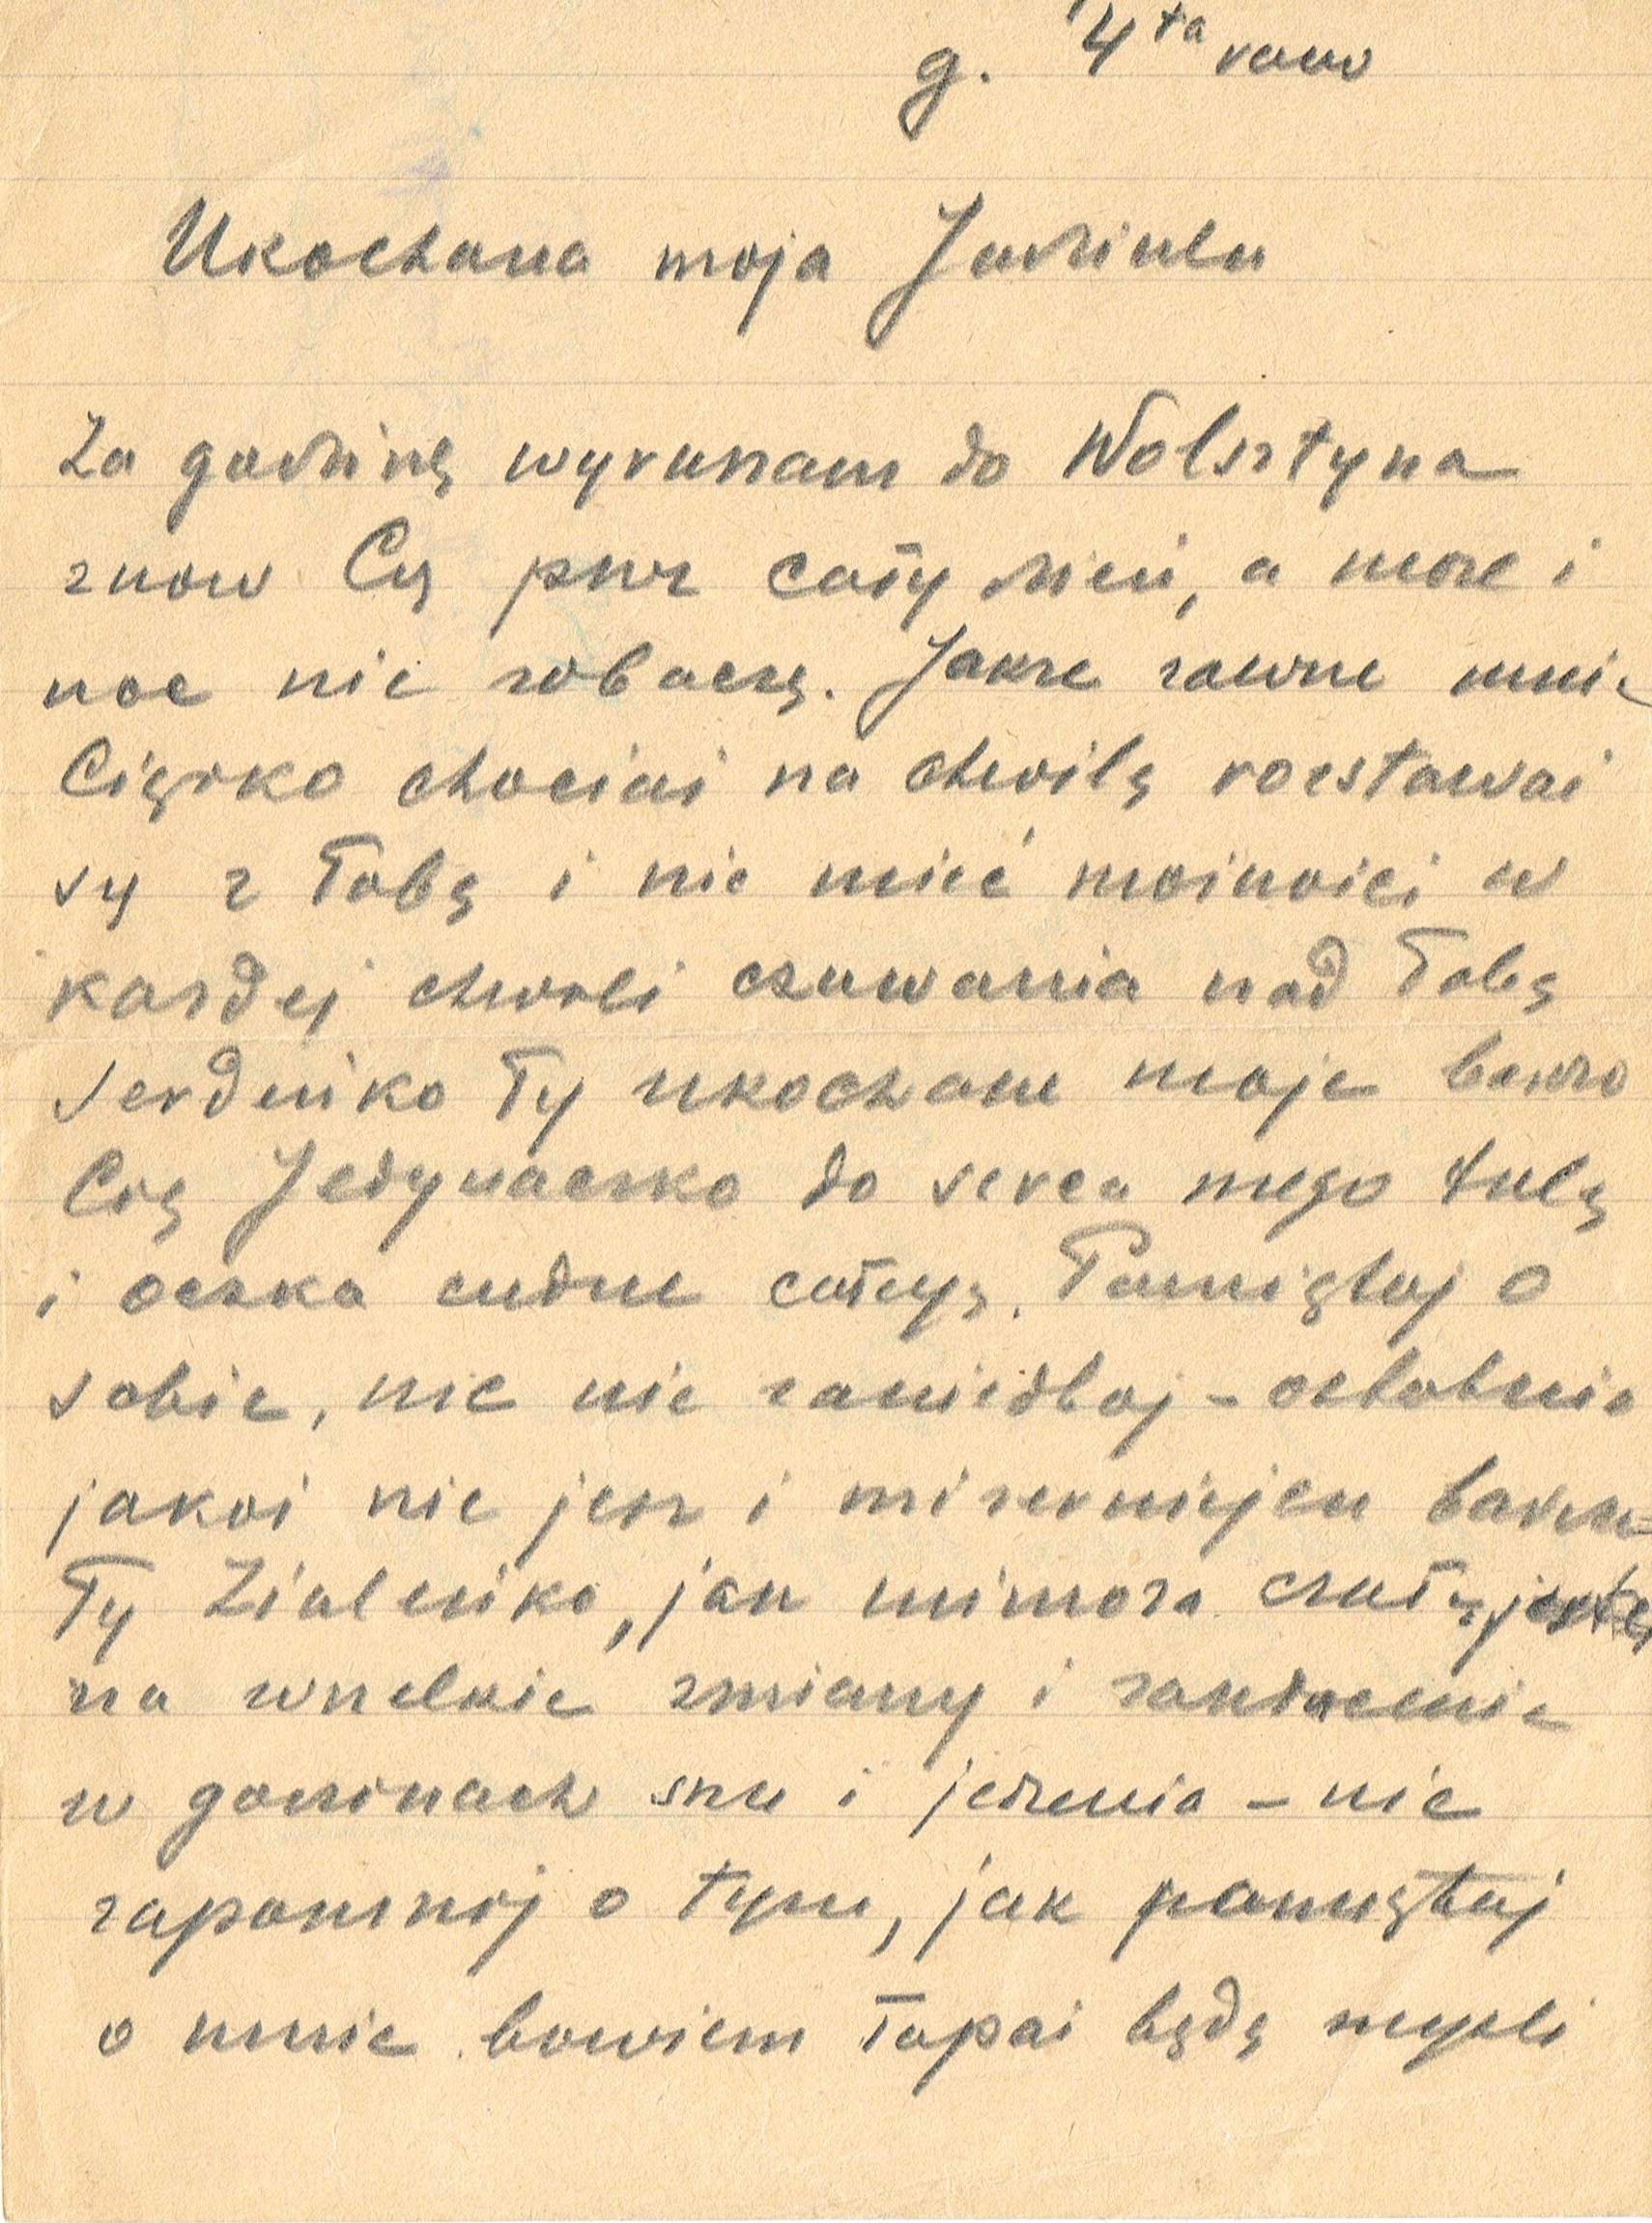 g. 4ta rano
Ukochana moja Jadziulu
Za godzinę wyruszam do Wolsztyna
znow Cię przez cały dzień, a może i
noc nie zobaczę. Jakże zawsze mnie
Ciężko chociaż na chwilę rozstawać
się z Tobą i nie mieć możności w
każdej chwili czuwania nad Tobą
Serdeńko Ty ukochane moje bardzo
Cię Jedynaczko do serca mego tulę
i oczka cudne całuję. Pamiętaj o
sobie, nic nie zaniedbaj - ostatnio
jakoś nie jesz i mizerniejesz bardzo
Ty Zialeńko, jak mimoza czułą jesteś
na wszelkie zmiany i zaniedbanie
w godzinach snu i jedzenia - nie
zapomnij o tym, jak pamiętaj
o mnie bowiem łapać będę myśli